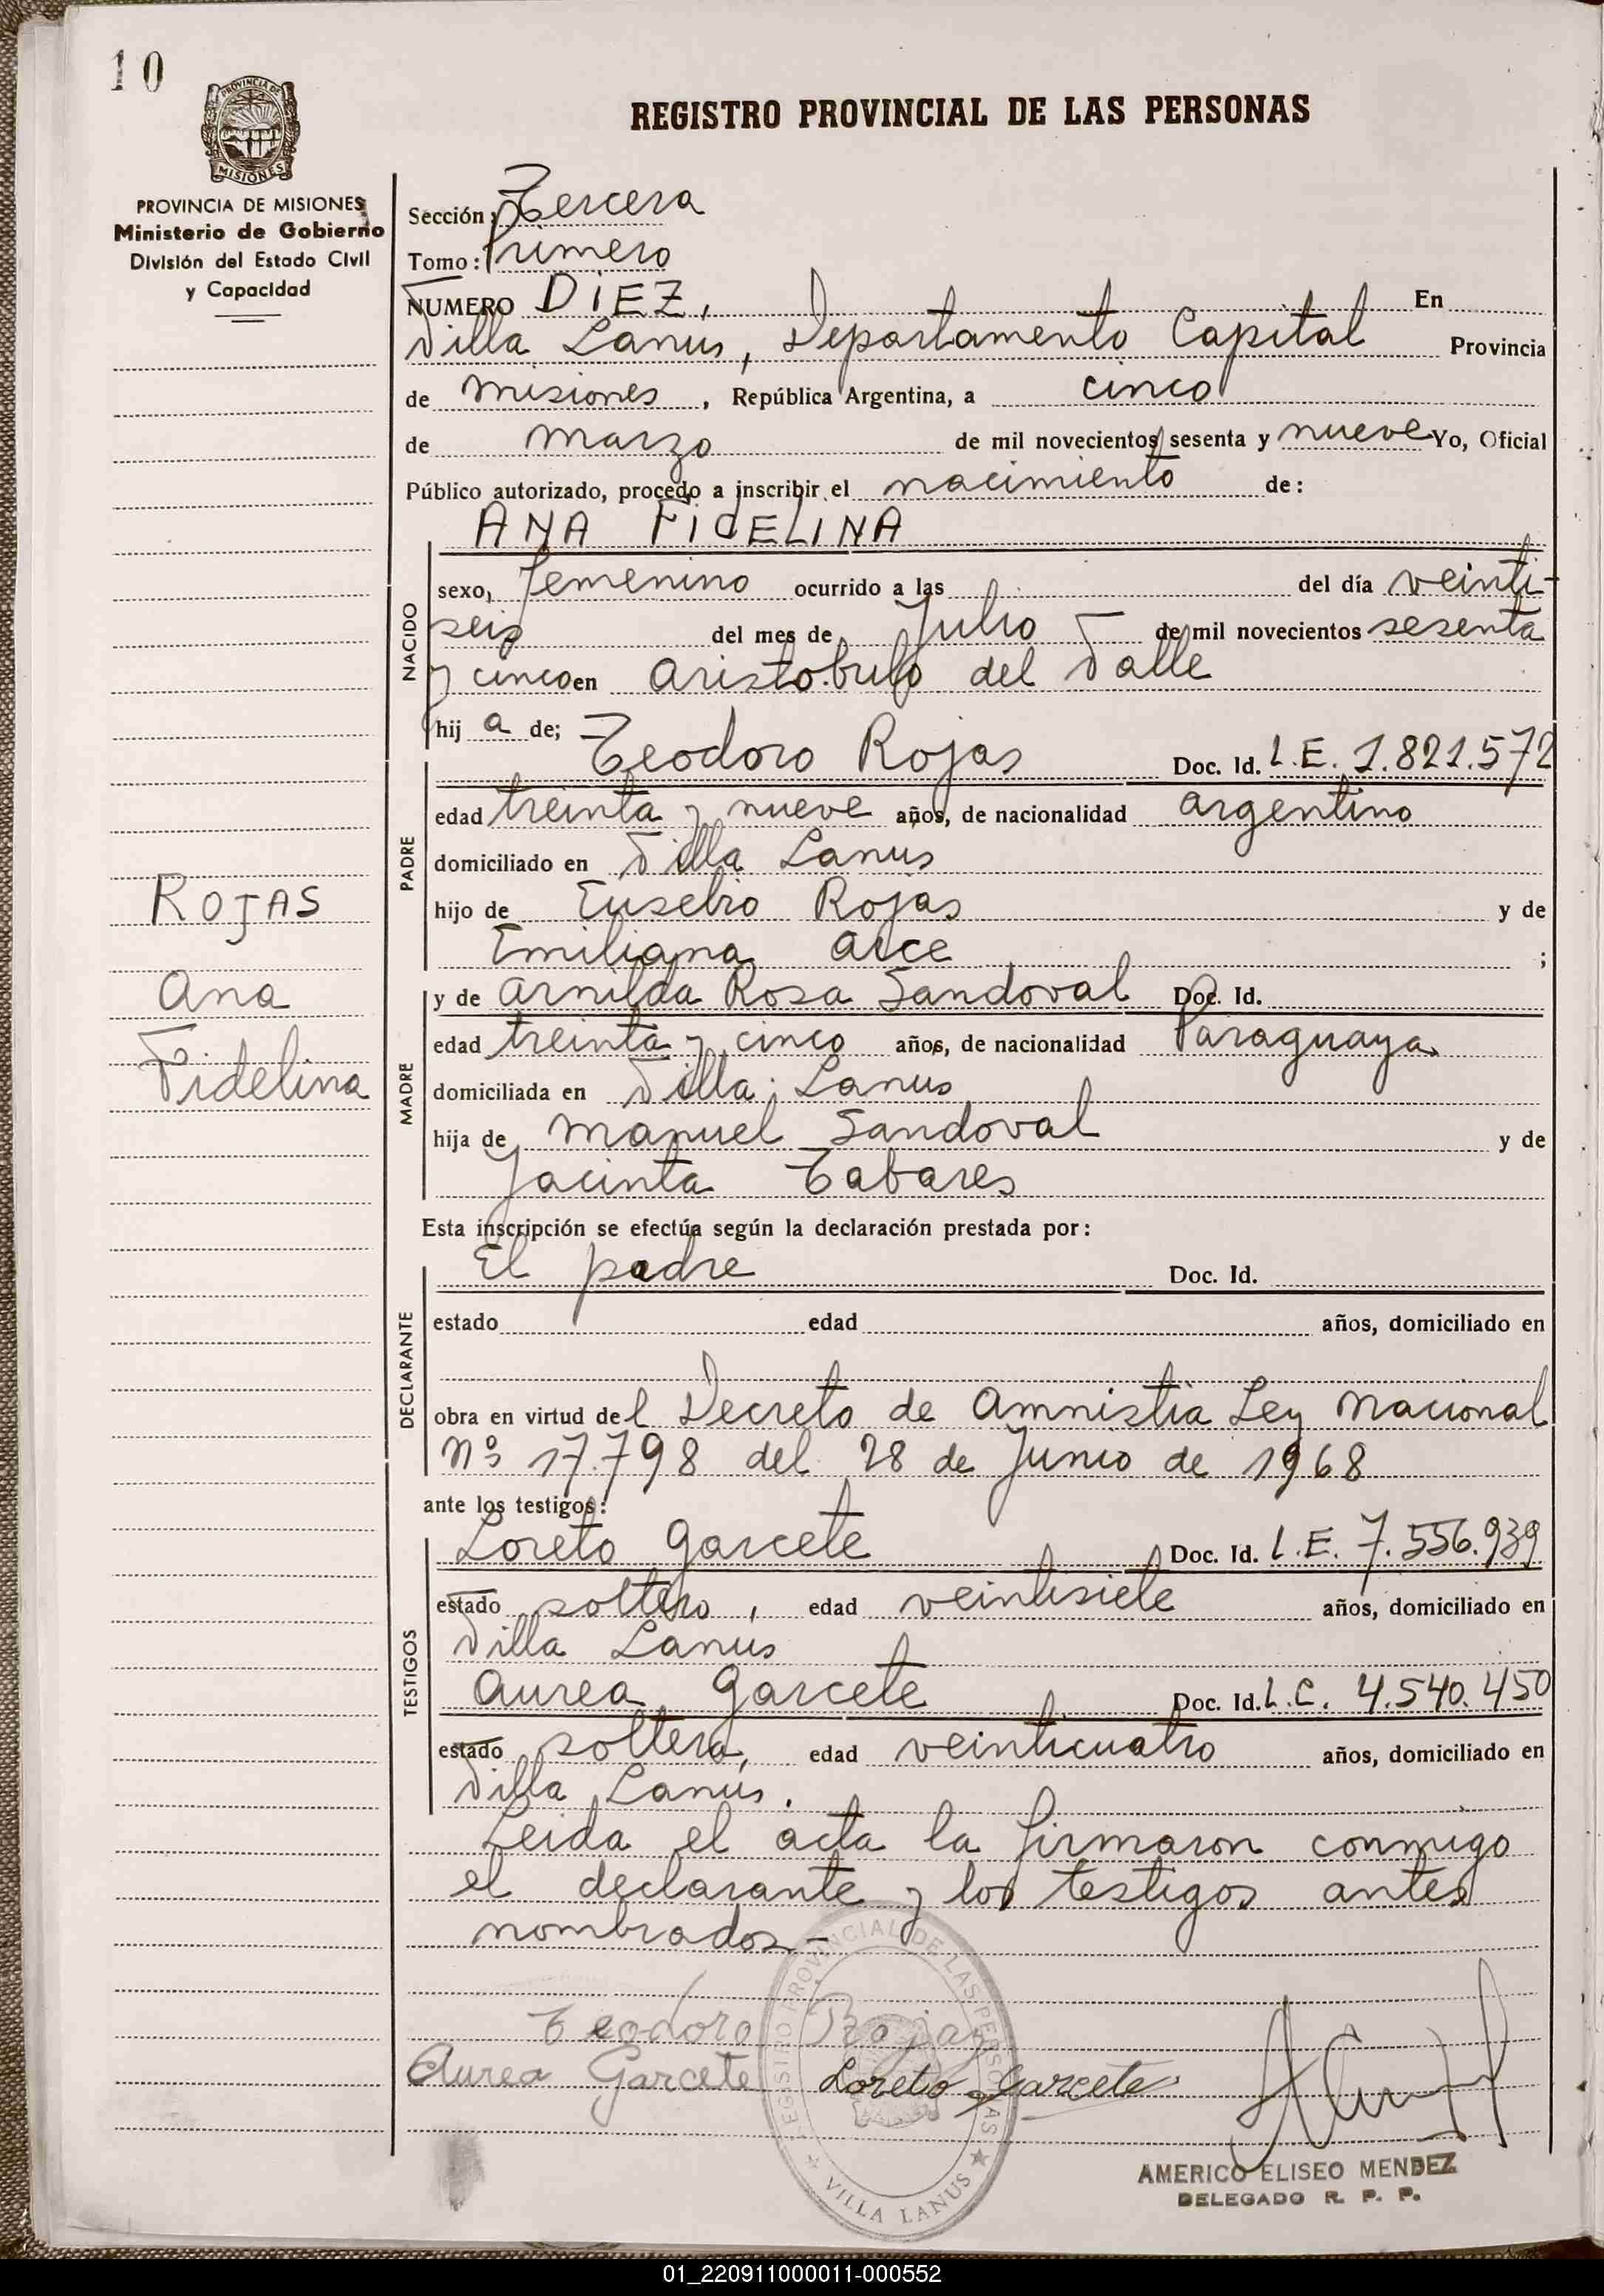 10
PROVINCIA DE MISIONES
PROVINCIA DE MISIONES
Ministerio de Gobierno
División del Estado Civil
y Capacidad
REGISTRO PROVINCIAL DE LAS PERSONAS
Sección: Tercera
Tomo: Primero
NUMERO DIEZ, En
Villa Lanus, Departamento Capital Provincia
de Misiones, República Argentina, a cinco
de marzo de mil novecientos sesenta y nueve Yo, Oficial
Público autorizado, procedo a inscribir el nacimiento de:
ANA FIDELINA
NACIDO
sexo, femenino ocurrido a las del día veinti-
seis del mes de Julio de mil novecientos sesenta
y cinco en Aristobulo del Valle
hij a de; Teodoro Rojas Doc. Id. L.E. 1.821.572
PADRE
edad treinta y nueve años, de nacionalidad argentino
domiciliado en Villa Lanus
hijo de Eusebio Rojas y de
Emiliana Arce ;
ROJAS
Ana
Fidelina
MADRE
y de Arnilda Rosa Sandoval Doc. Id.
edad treinta y cinco años, de nacionalidad Paraguaya
domiciliada en Villa Lanus
hija de Manuel Sandoval y de
Jacinta Tabares
Esta inscripción se efectúa según la declaración prestada por:
DECLARANTE
El padre Doc. Id.
estado edad años, domiciliado en
obra en virtud del Decreto de Amnistia Ley Nacional
Nº 17.798 del 28 de Junio de 1968
ante los testigos:
TESTIGOS
Loreto Garcete Doc. Id. L.E. 7.556.939
estado soltero, edad veintisiete años, domiciliado en
Villa Lanús
Aurea Garcete Doc. Id. L.C. 4.540.450
estado soltera, edad veinticuatro años, domiciliado en
Villa Lanús.
Leida el acta la firmaron conmigo
el declarante y los testigos antes
nombrados.-
Teodoro Rojas
Aurea Garcete Loreto Garcete
REGISTRO PROVINCIAL DE LAS PERSONAS
VILLA LANUS
AMERICO ELISEO MENDEZ
DELEGADO R. P. P.
01_220911000011-000552